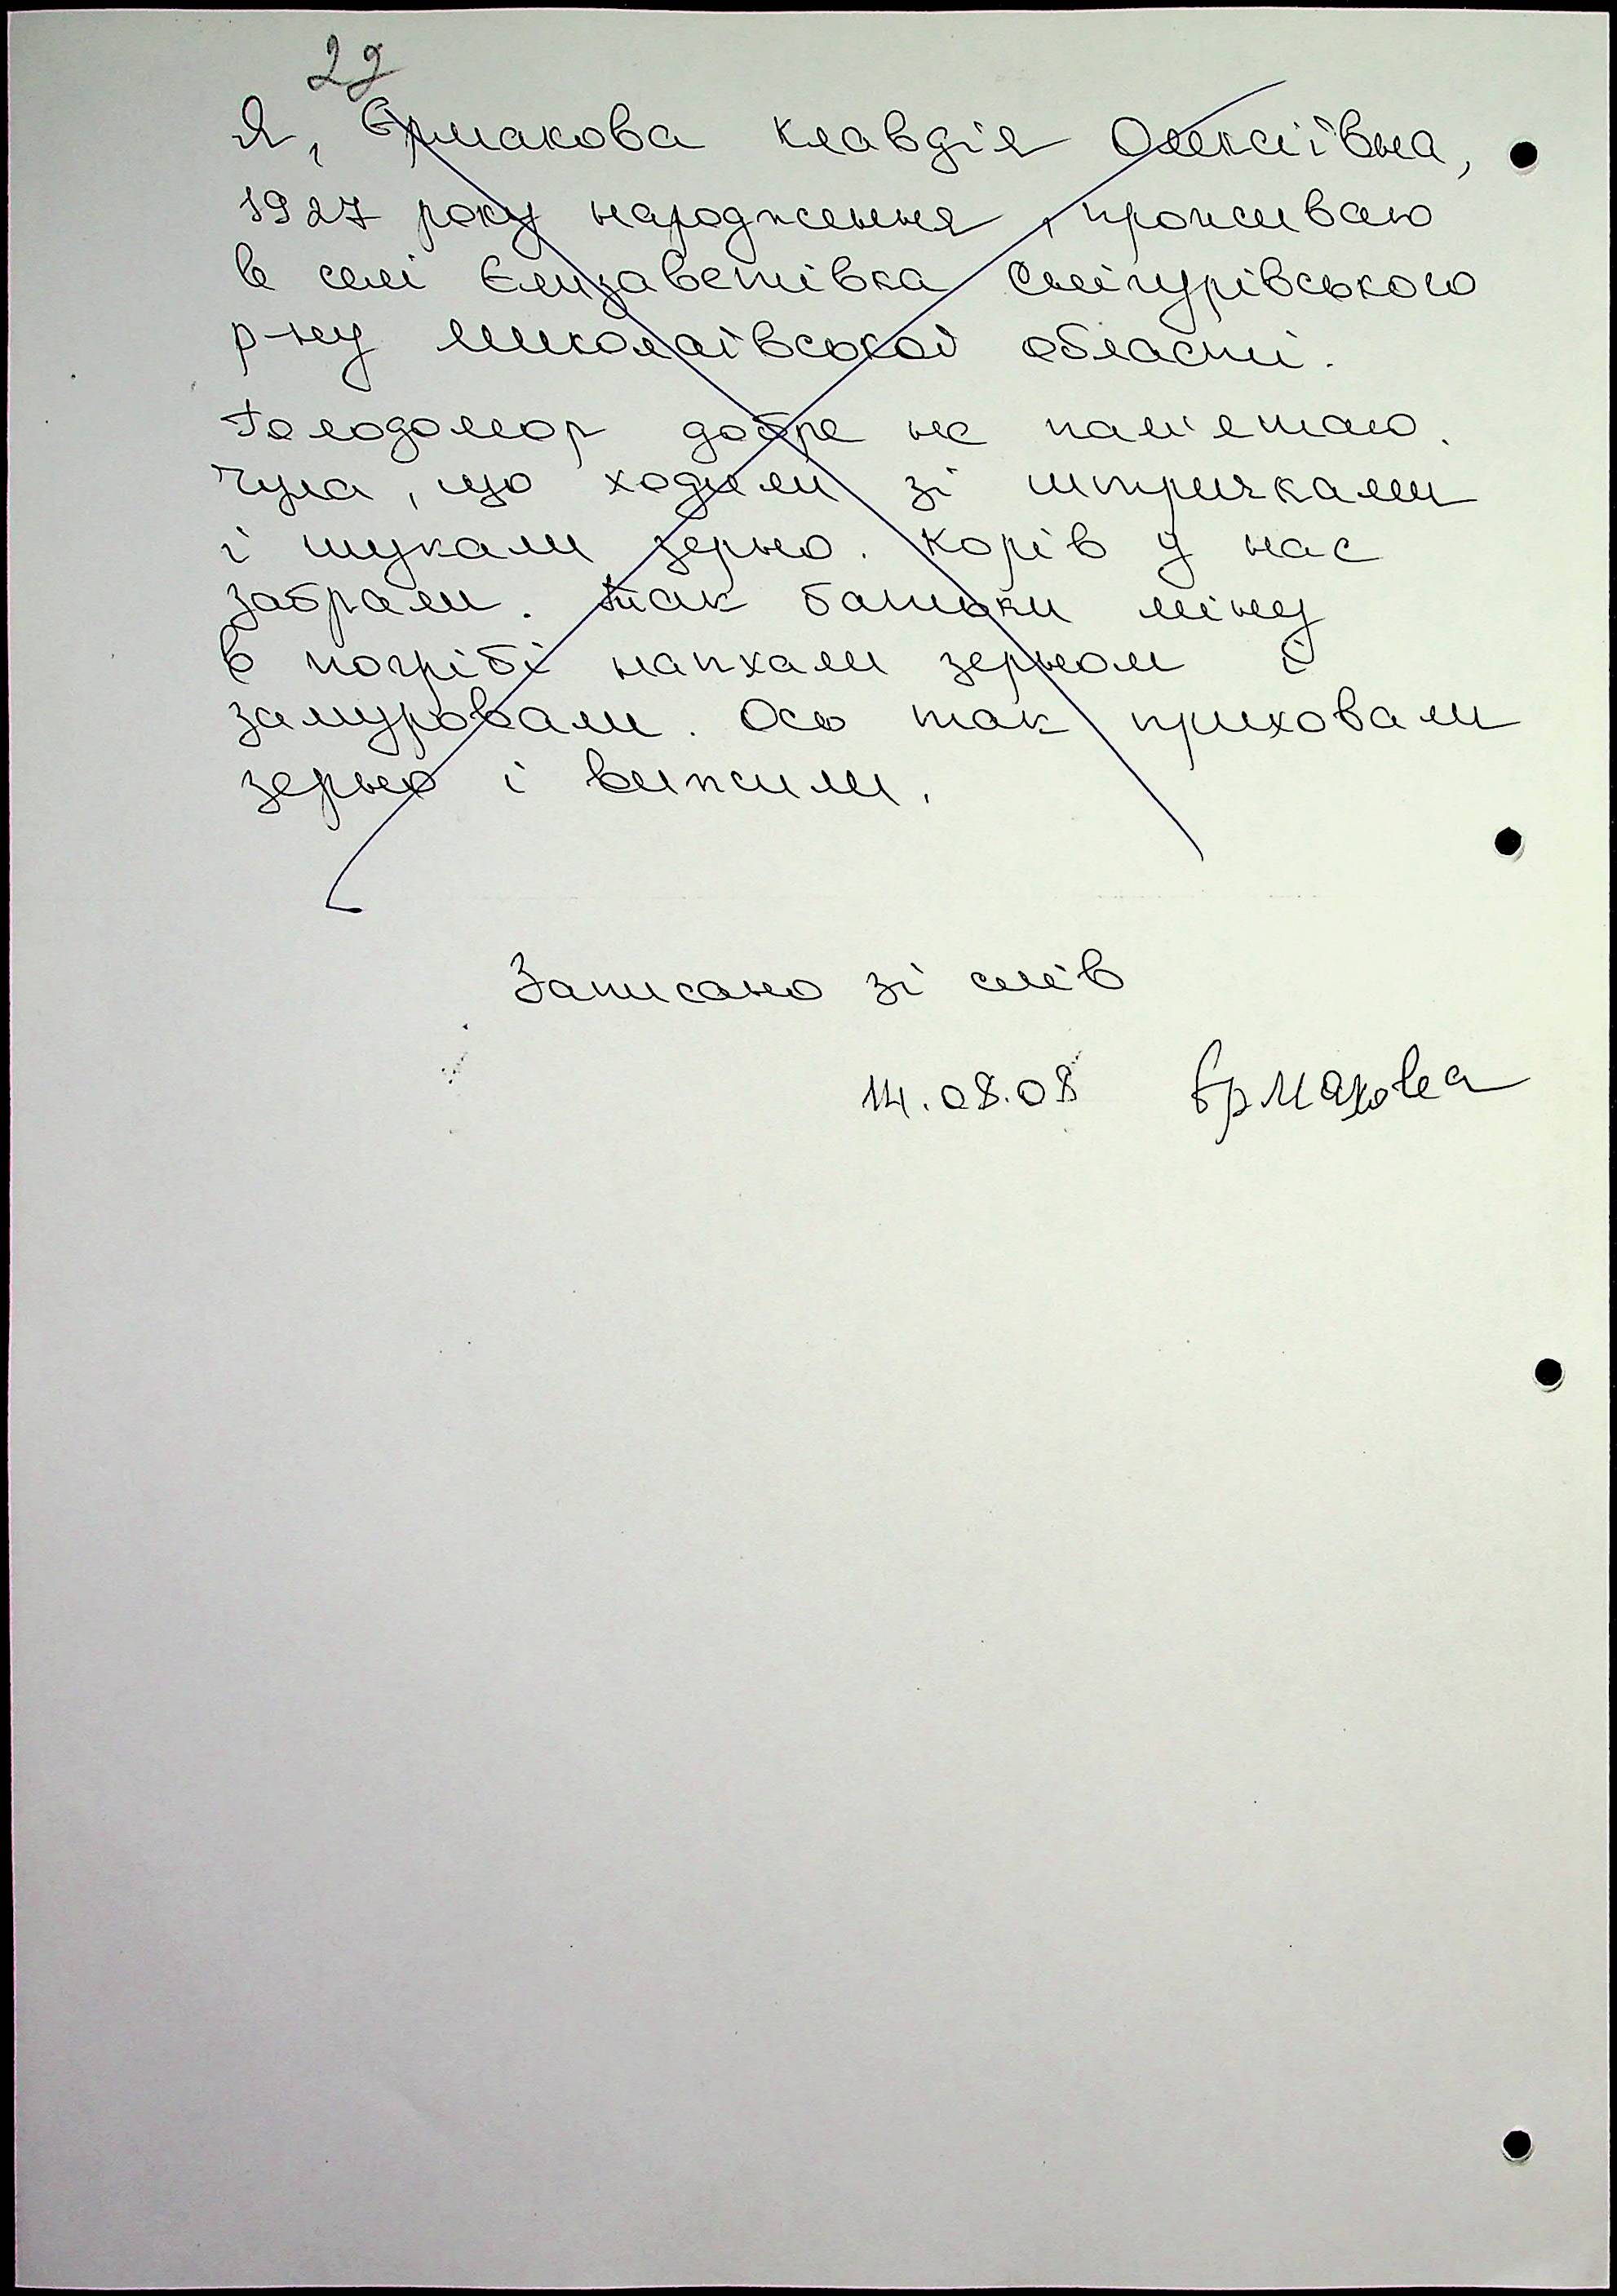 22
Я, Єрмакова Клавдія Олексіївна,
1927 року народження, проживаю
в селі Єлизаветівка Снігурівського
р-ну Миколаївської області.
Голодомор добре не пам'ятаю.
Чула, що ходили зі штричками
і шукали зерно. Корів у нас
забрали. Так батьки міну
в погрібі напхали зерном і
замуровали. Ось так приховали
зерно і вижили.
Записано зі слів
14.08.08 Єрмакова